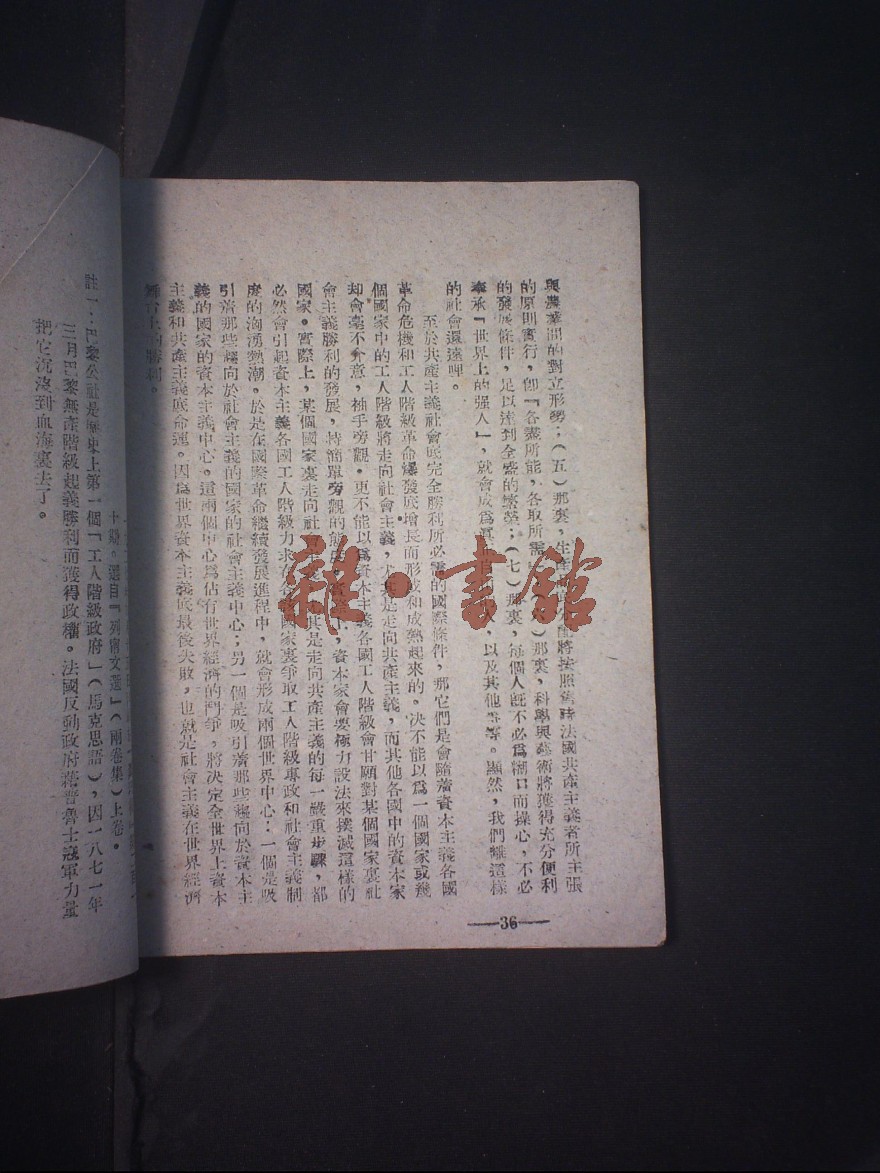 與農業間的對立形勢；（五）那裏，生產 將按照舊時法國共產主義者所主張
的原則實行，卽『各盡所能，各取所需 ）那裏，科學與藝術將獲得充分便利
的發展條件，足以達到全盛的繁榮；（七）那裏，每個人旣不必爲糊口而操心，不必
奉承『世界上的强人』，就會成爲眞 、以及其他等等。顯然，我們離這樣
的社會還遠哩。
至於共產主義社會底完全勝利所必需的國際條件，那它們是會隨着資本主義各國
革命危機和工人階級革命爆發底增長而形成和成熟起來的。決不能以爲一個國家或幾
個國家中的工人階級將走向社會主義， 是走向共產主義，而其他各國中的資本家
却會毫不介意，袖手旁觀。更不能以爲資本主義各國工人階級會甘願對某個國家裏社
會主義勝利的發展，持簡單旁觀的態 ，資本家會要極力設法來撲滅這樣的
國家。實際上，某個國家裏走向社會 其是走向共產主義的每一嚴重步驟，都
必然會引起資本主義各國工人階級力求在 國家裏爭取工人階級專政和社會主義制
度的洶湧熱潮。於是在國際革命繼續發展進程中，就會形成兩個世界中心：一個是吸
引着那些趨向於社會主義的國家的社會主義中心；另一個是吸引着那些趨向於資本主
義的國家的資本主義中心。這兩個中心爲佔有世界經濟的鬥爭，將決定全世界上資本
主義和共產主義底命運。因爲世界資本主義底最後失敗，也就是社會主義在世界經濟
舞台上的勝利。
—36—
十頁。選自『列甯文選』（兩卷集）上卷。
註一：巴黎公社是歷史上第一個『工人階級政府』（馬克思語），因一八七一年
三月巴黎無產階級起義勝利而獲得政權。法國反動政府藉普魯士寇軍力量
把它沉沒到血海裏去了。
雜·書館